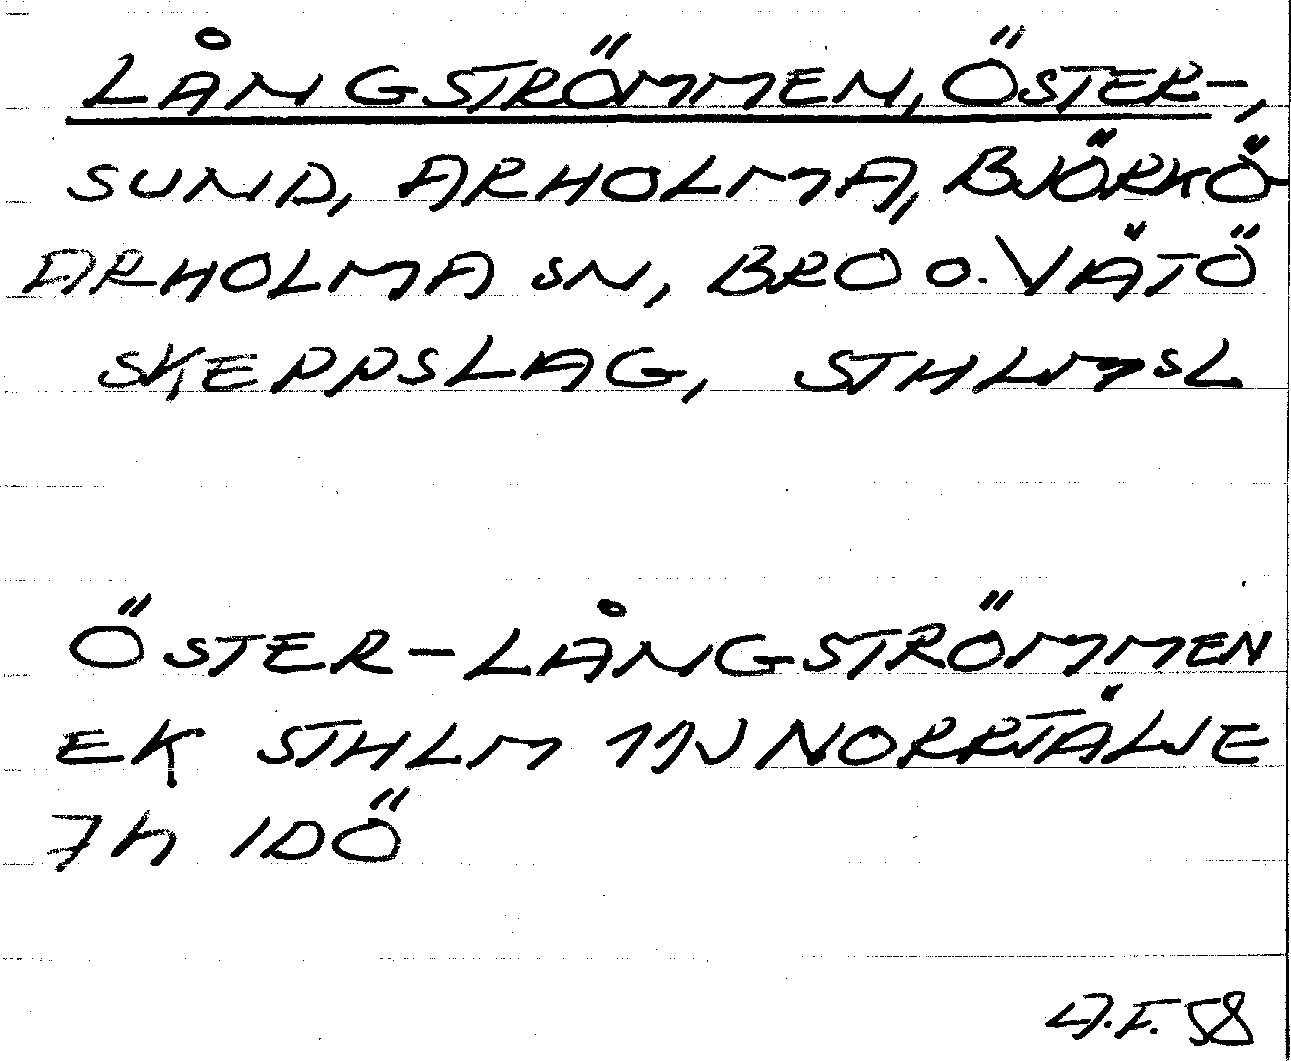 LÅNGSTRÖMMEN, ÖSTER-,
SUND, ARHOLMA, BJÖRKÖ-
ARHOLMA SN, BRO O. VÄTÖ
SKEPPSLAG, STHLMSL
ÖSTER-LÅNGSTRÖMMEN
EK STHLM 11J NORRTÄLJE
7h IDÖ
A.F. 58